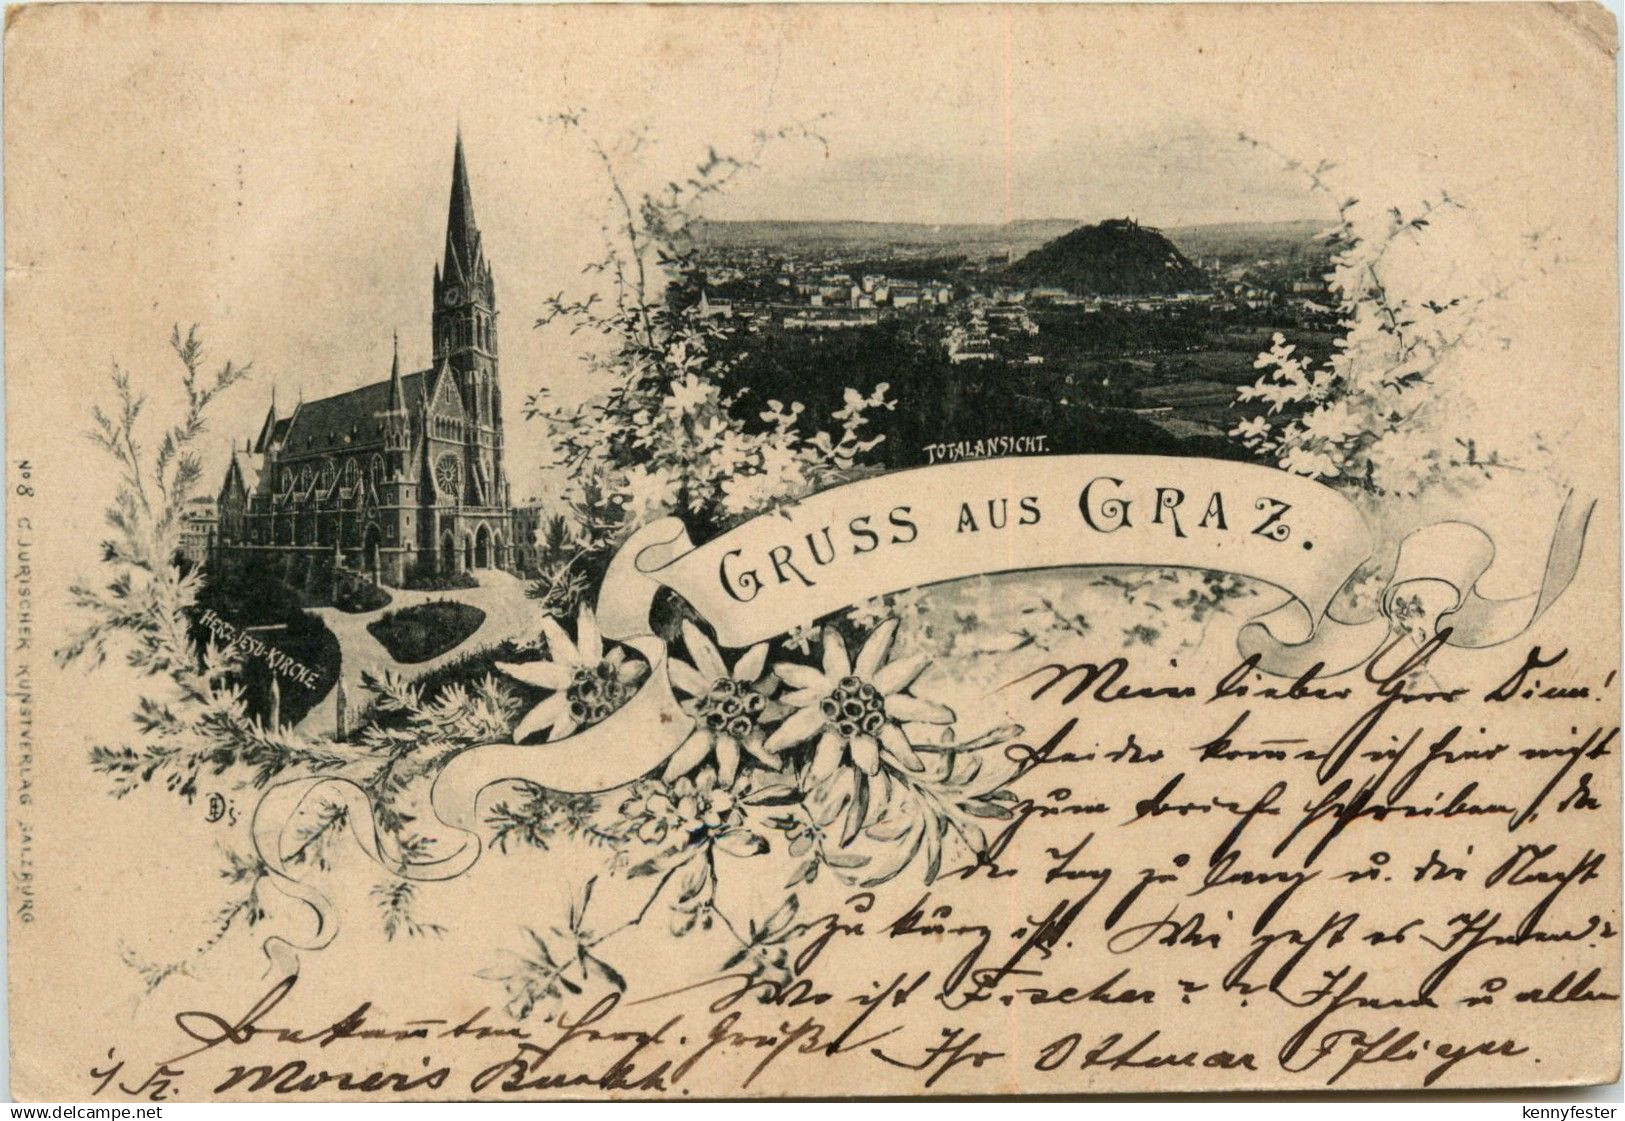 TOTALANSICHT.
GRUSS AUS GRAZ.
HERZ-JESU-KIRCHE.
No 8 C. JURISCHEK KUNSTVERLAG SALZBURG
Mein lieber Herr Dim!
Leider komme ich hier nicht
zum Briefe schreiben, da
der Tag zu lang u. die Nacht
zu kurz ist. Wie geht es Ihnen?
Wo ist Fischer?? Ihnen u allen
Bekannten herzl. Grüße Ihr Ottmar Pflieger.
delcampe.net
kennyfester